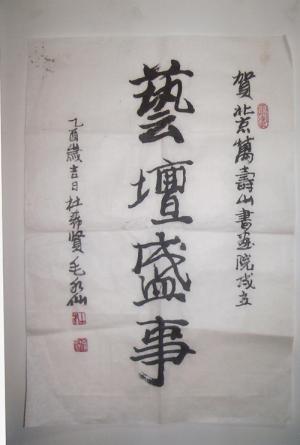 賀北京萬壽山書画院成立
藝壇盛事
乙酉歲吉日杜希賢毛水仙